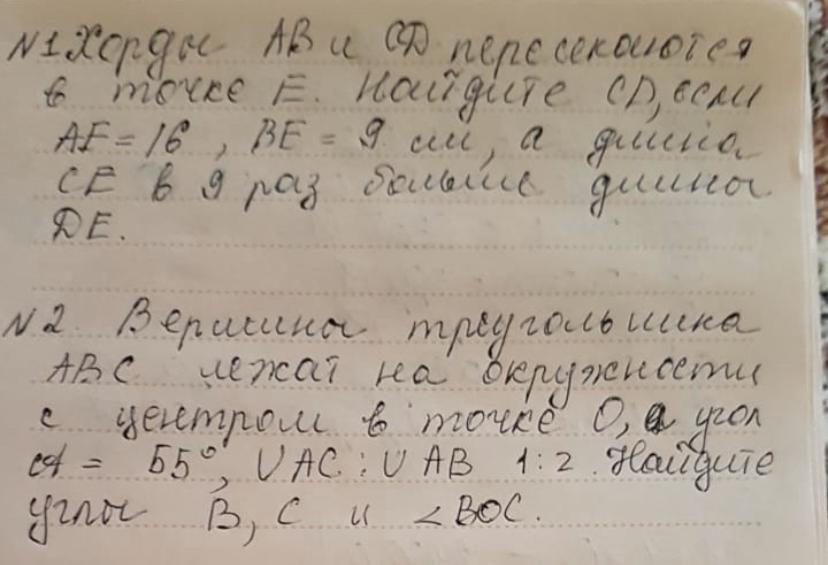 N1 Хорды AB и CD пересекаются
в точке E. Найдите CD, если
AE = 16, BE = 9 см, а длина
CE в 9 раз больше длины
DE.
N2. Вершины треугольника
ABC лежат на окружности
с центром в точке O, а угол
A = 55°, ∪AC : ∪AB 1:2. Найдите
углы B, C и ∠BOC.